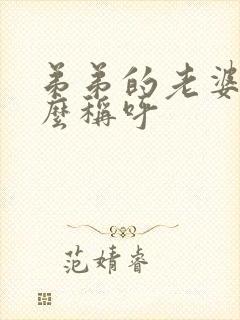 弟弟的老婆
麼稱呼
范婧睿